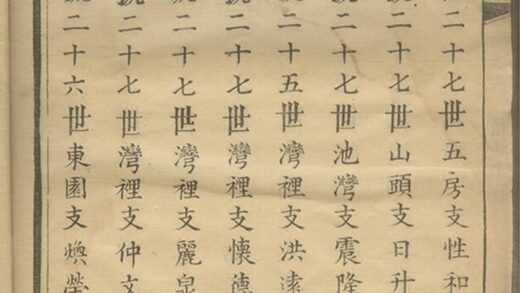 二十七世五房支性和
二十七世山頭支日升
二十七世池灣支震隆
二十五世灣裡支洪遠
二十七世灣裡支懷德
二十七世灣裡支麗泉
二十七世灣裡支仲文
二十六世東園支煥榮